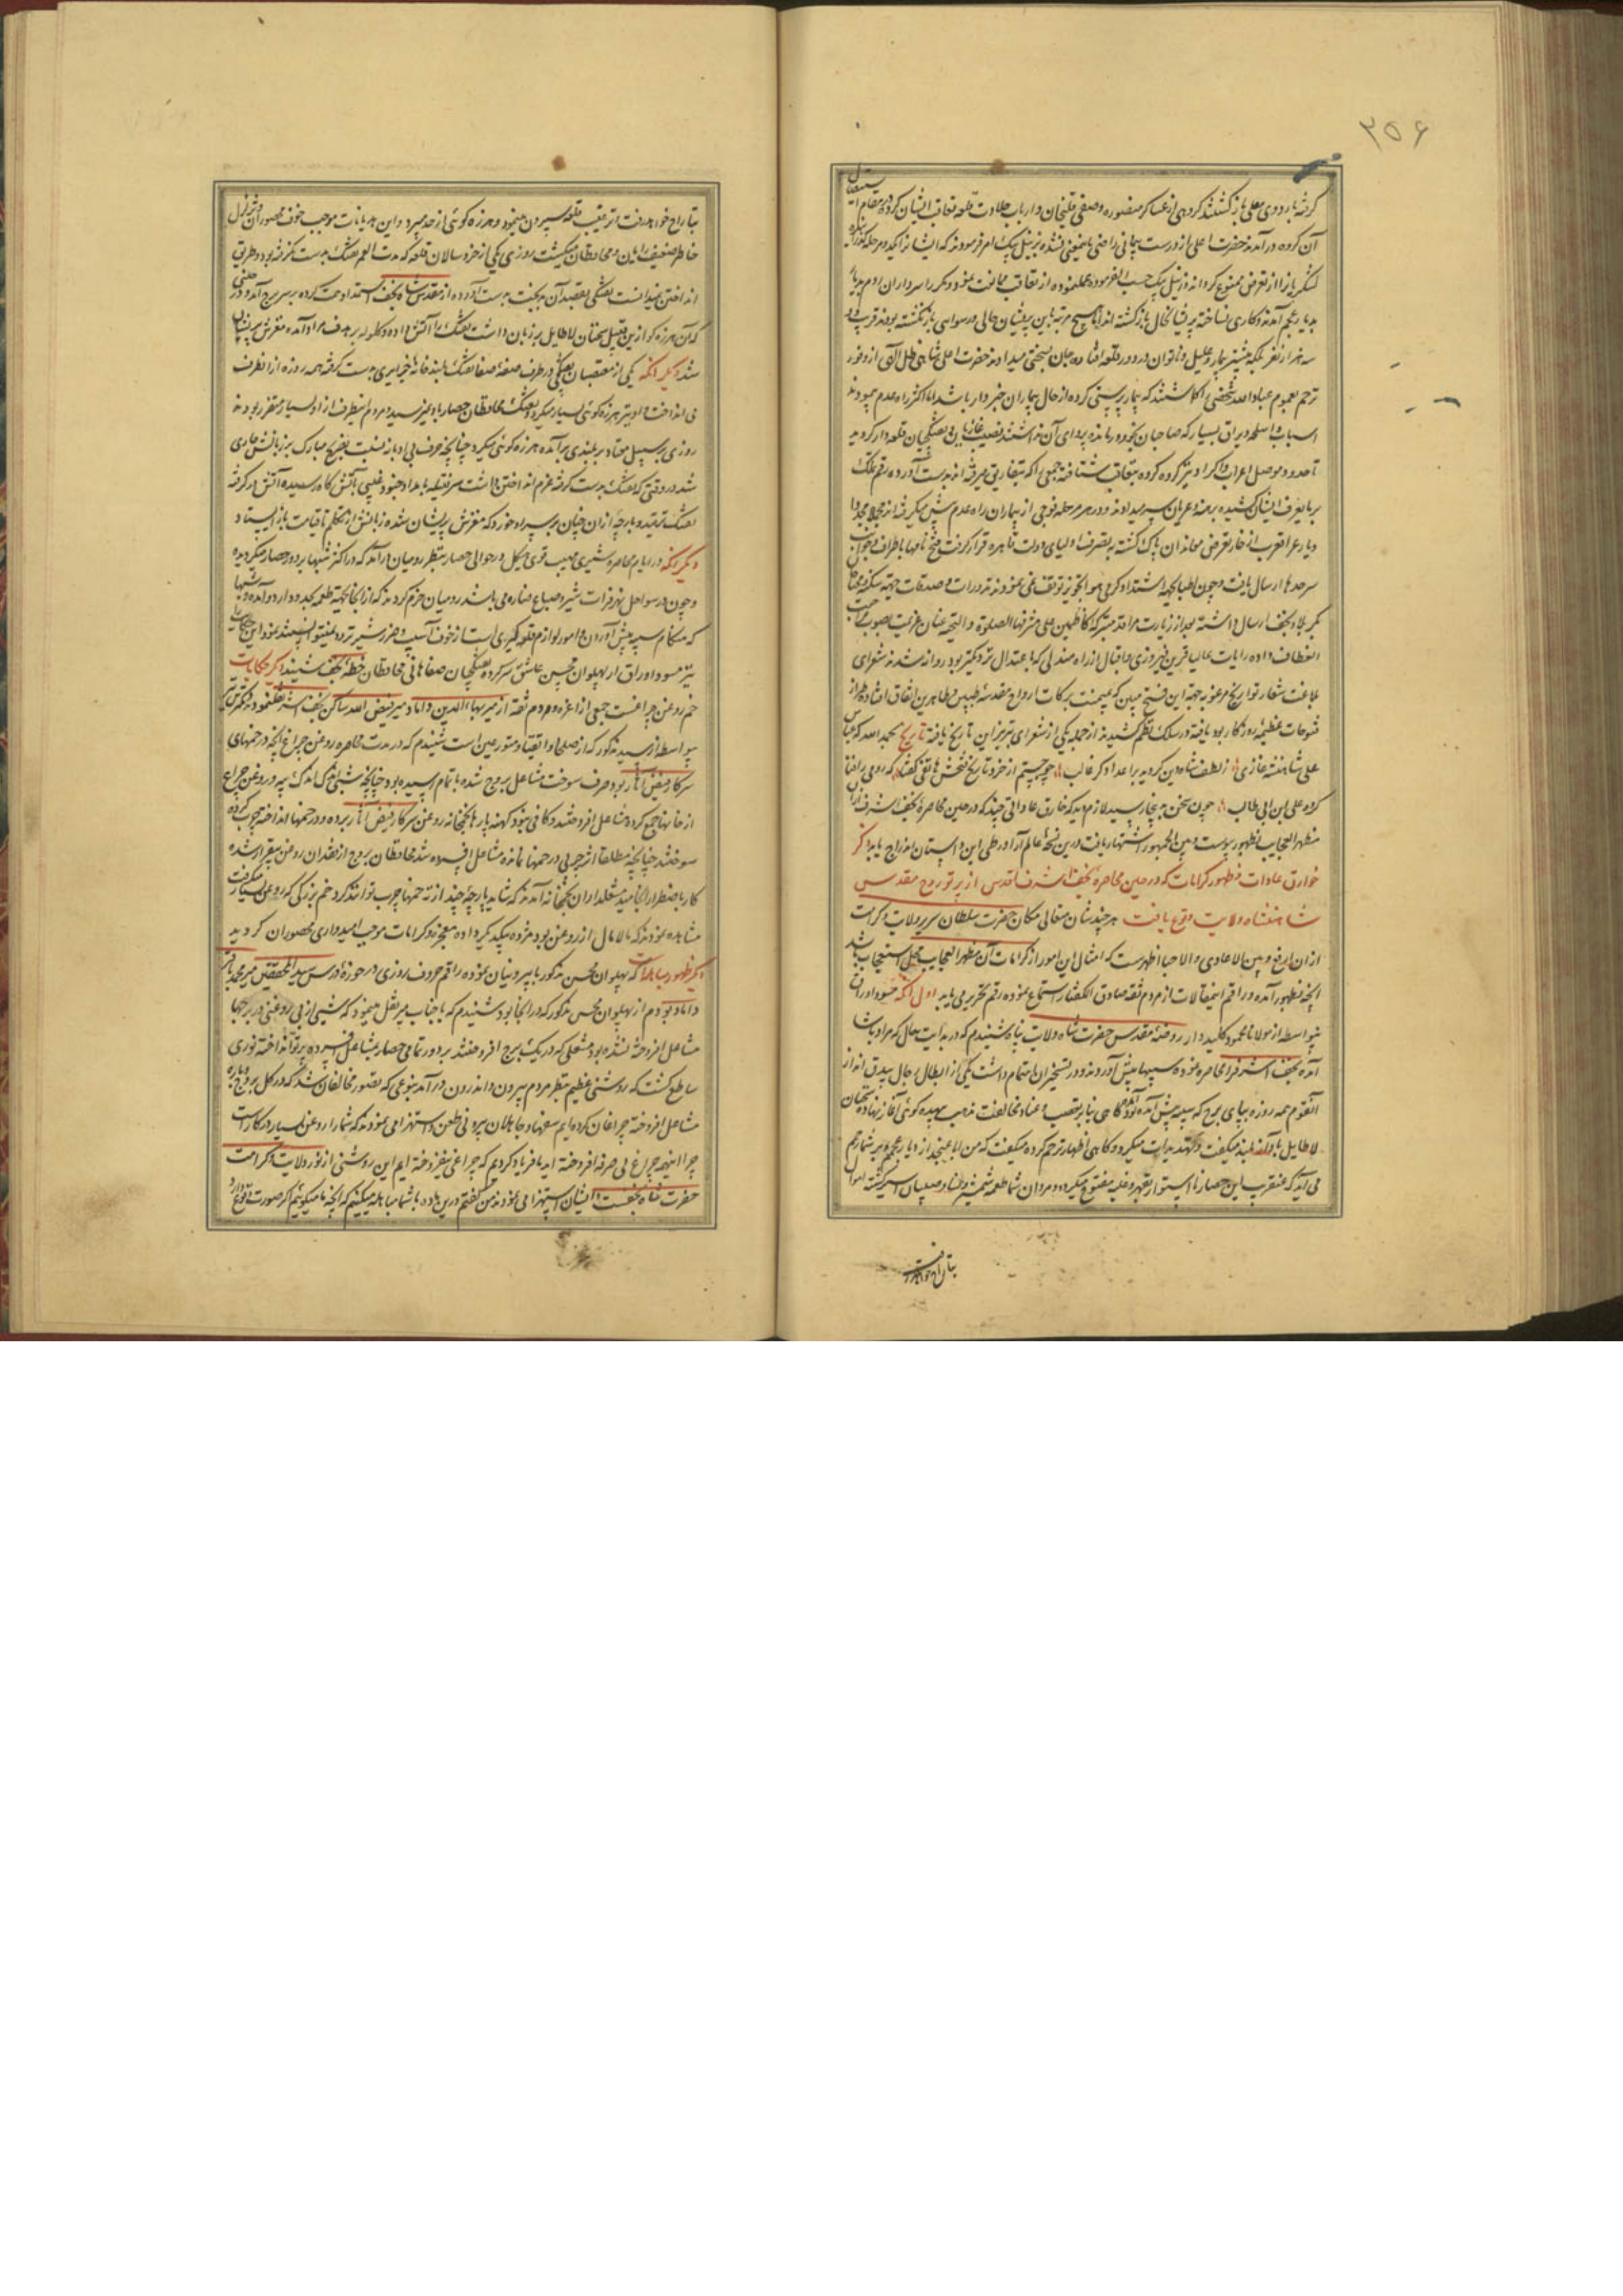 ۳۵۶
کرفته باردوی معلی بازکشتند کروهی از عساکر منصوره وصفی قلیخان وارباب جلادت قلعه تعاقب ایشان کرده در مقام استیصال
آن کروه درآمدند حضرت اعلی از درست پیمانی راضی باینمعنی نشده زینل بیک امر فرمودند که ایشانرا یکدو مرحله کذرانیده
لشکریانرا از تعرض ممنوع کرداند وزینل بیک حسب الفرموده عمل نموده از تعاقب ممانعت نمود ومکرر سرداران روم بدیار
بدیار عجم آمدند وکاری نساخته پریشانحال بازکشته اند اما هیچ مرتبه باین پریشان حالی ورسوایی بازنکشته بودند قریب دو
سه هزار نفر بلکه بیشتر بیمار وعلیل وناتوان در دور قلعه افتاده جان بسختی میدادند حضرت اعلی شاهی ظل اللهی از وفور
ترحم بعموم عباد الله شخصی را کماشتند که بیمارپرستی کرده از حال بیماران خبردار باشد اما اکثر راه عدم پیمودند
اسباب واسلحه ویراق بسیار که صاحبان بخود درمانده پروای آن نداشتند نصیب غازیان وتفنکچیان قلعه دار کردید
تا حدود موصل اعراب واکراد نیز کروه کروه بتعاقب شتافته جمعی را که بتفاریق میرفته اند بدست آورده رقم تملک
برمایعرف ایشان کشیده برهنه وعریان سر میدادند ودر هر مرحله فوجی از بیماران راه عدم پیش میکرفته اند مجملا مجددا
دیار عراق عرب از خار تعرض معاندان پاک کشته بتصرف اولیای دولت قاهره قرار کرفت وفتح نامها باطراف وجوانب
سرحدها ارسال یافت وچون اطبا بجهة اشتداد کرمی هوا تجویز توقف نمی نمودند نذورات وصدقات جهة سکنه عتبات
کربلا ونجف ارسال داشته بعد از زیارت مراقد متبرکه کاظمین علی مشرفها الصلوة والتحیه عنان عزیمت بصوب مراجعت
انعطاف داده رایات جلال قرین فیروزی واقبال از راه مندلی که باعتدال نزدیکتر بود روانه شدند شعرای
بلاغت شعار تواریخ مرغوبه جهة این فتح مبین که بمیمنت برکات ارواح مقدسه طیبین وطاهرین اتفاق افتاده طراز
فتوحات عظیمه روزکار بود یافته در سلک نظم کشیدند از جمله یکی از شعرای تبریز این تاریخ یافته تاریخ بحمد الله که عباس
علی شاهنشه غازی زلطف شاه دین کردید بر اعدا دکر غالب چو جستم از خرد تاریخ فتحش هاتفی کفتا که رومی را فنا
کرد علی ابن ابی طالب چون سخن بدینجا رسید لازم دید که خارق عاداتی چند که در حین محاصره نجف اشرف از آن
مظهر العجایب بظهور پیوست وبین الجمهور اشتهار یافت درین نسخه عالم آرا در طی این داستان اندراج یابد ذکر
خوارق عادات وظهور کرامات که در حین محاصره نجف اشرف اقدس از پرتو روح مقدس
شاهنشاه ولایت وقوع یافت هرچند شان معالی مکان حضرت سلطان سریر ولایت وکرامت
از ان ارفع وبین الاعادی والاحبا اظهرست که امثال این امور از کرامات آن مظهر العجایب محل استعجاب باشد
آنچه بظهور آمده وراقم اینمقالات از مردم ثقه صادق الکفتار استماع نموده رقم تحریر می یابد اول آنکه مسود اوراق
بیواسطه از مولانا محمود کلیددار روضه مقدس حضرت شاه ولایت پناه شنیدم که در بدایت حال که مراد پاشا
آمده نجف اشرف را محاصره نموده سیبها پیش آوردند ودر تسخیر آن اهتمام داشت یکی از ابطال رجال بیدق انداز
آنقوم همه روزه بپای برج که سیبه پیش آمده بود آمده کاهی بنابر تعصب وعناد مخالفت مذهب بیهده کوئی آغاز نهاده سخنان
لاطایل باواز بلند میکفت وتهدیدات میکرد وکاهی اظهار ترحم کرده میکفت که من ابا عن جد از دیار عجمم وبر شما رحم
می آید که عنقریب این حصار نااستوار بقهر وغلبه مفتوح میکردد ومردان شما طعمه شمشیر ونساء وصبیان اسیر کشته اموال
بتاراج خواهد رفت
بتاراج خواهد رفت وترغیب قلعه سپردن مینمود وهرزه کوئی از حد میبرد واین هذیانات موجب خوف محصوران وتزلزل
خاطر ضعیف رایان ومحافظان میکشت روزی یکی از خردسالان قلعه که مدت العمر تفنک بدست نکرفته بود وطریق
انداختن نمیدانست تفنکی بقصد آن بدبخت بدست آورده از مقدس شاه نجف استمداد همت کرده بر سر برج آمد ودر حینی
که آن هرزه کو ازین قبیل سخنان لاطایل بر زبان داشت تفنک را آتش داده وکلوله بر هدف مراد آمده مغزش پریشان
شد دیکر آنکه یکی از متعصبان تفنکچی در طرف صفه صفا تفنک بلند خانه جزایری بدست کرفته همه روزه از انطرف
می انداخت واو نیز هرزه کوئی بسیار میکرد وتفنک محافظان حصار باو نمیرسید ومردم اینطرف از او بسیار متضرر بودند
روزی بر سبیل معتاد بر بلندی برآمده هرزه کوئی میکرد چنانچه حرف بی ادبانه نسبت بضریح مبارک بر زبانش جاری
شد در وقتی که تفنک بدست کرفته عزم انداختن داشت سر فتیله بامداد جنود غیبی بآتش کاه رسیده آتش در کرفته
تفنک ترقیده وپارچه از ان چنان بر سر او خورد که مغزش پریشان شده زبانش از تکلم تا قیامت باز ایستاد
دیکر آنکه در ایام محاصره شیری مهیب قوی هیکل در حوالی حصار بنظر رومیان درآمد که در اکثر شبها بر دور حصار میکردیده
وچون در سواحل نهر فرات شیر وضباع بیشه می باشند رومیان جزم کردند که از انجا بجهة طعمه بحدود اردو آمده وشبها
که هنکام سیبه پیش آوردن وامور لوازم قلعه کیری است از خوف آسیب وضرر شیر تردد نمیتوانستند نمود این حکایت
نیز مسود اوراق از پهلوان محسن عاشق سرکرده تفنکچیان صفاهانی محافظان خطه نجف شنیدم دیکر حکایت
خم روغن چراغست جمعی از اعزه ومردم ثقه از میر بهاء الدین داماد میر فیض الله ساکن نجف اشرف نقل نمودند وکمترین
بیواسطه از سید مذکور که از صلحا واتقیا ومتورعین است شنیدم که در مدت محاصره روغن چراغ آنچه در خمهای
سرکار فیض آثار بود صرف سوخت مشاعل بروج شده باتمام رسیده بود چنانچه شبی اندک اندک پیه وروغن چراغ
از خانها جمع کرده مشاعل افروختند وکافی نبود کهنه پارها بخمخانه روغن سرکار فیض آثار برده ودر خمها انداخته چرب کرده
سوختند چنانچه مطلقا اثر چربی در خمها نمانده ومشاعل افسرده شد محافظان بروج از فقدان روغن بیقرار شده
کار باضطرار انجامید مشعلداران بخمخانه آمدند که شاید پارچه چند از ته خمها چرب توانند کرد خم بزرکی که روغن بسیار میکرفت
مشاهده نمودند که مالامال از روغن بود مژده بیکدیکر داده معجزه وکرامات موجب امیدواری محصوران کردید
دیکر ظهور مباهله که پهلوان محسن مذکور با بیرونیان نموده راقم حروف روزی در حوزه درس سید المحققین میر محمد باقر
داماد بودم از پهلوان محسن مذکور که در آنجا بود شنیدم که با جناب میر نقل مینمود که شبی از بی روغنی در برجها
مشاعل افروخته نشده بود مشعلی که در یک برج افروختند بر دور تمامی حصار بمشاعل افسرده پرتو انداخته نوری
ساطع کشت که روشنی عظیم بنظر مردم بیرون واندرون درآمد بنوعی که تصور مخالفان شد که در کل بروج وباره
مشاعل افروخته چراغان کرده ایم سفها وجاهلان بیرونی طعن واستهزا می نمودند که شما را روغن بسیار در کار است
چرا اینهمه چراغ بی صرفه افروخته اید ما فریاد کردیم که چراغی نیفروخته ایم این روشنی از نور ولایت وکرامت
حضرت شاه نجفست ایشان استهزا می نمودند من کفتم درین ماده با شما مباهله میکنیم که آنچه ما میکوئیم اکر صورت وقوع دارد